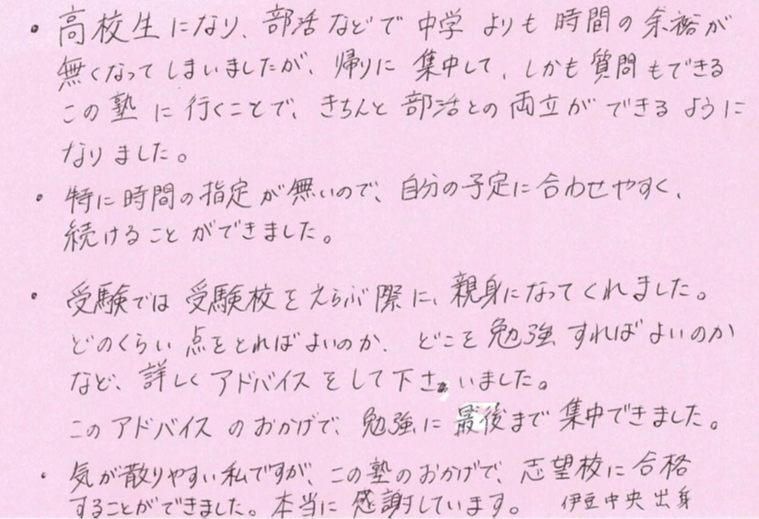 ・高校生になり、部活などで中学よりも時間の余裕が
無くなってしまいましたが、帰りに集中して、しかも質問もできる
この塾に行くことで、きちんと部活との両立ができるように
なりました。
・特に時間の指定が無いので、自分の予定に合わせやすく、
続けることができました。
・受験では受験校をえらぶ際に、親身になってくれました。
どのくらい点をとればよいのか、どこを勉強すればよいのか
など、詳しくアドバイスをして下さいました。
このアドバイスのおかげで、勉強に最後まで集中できました。
・気が散りやすい私ですが、この塾のおかげで、志望校に合格
することができました。本当に感謝しています。 伊豆中央出身